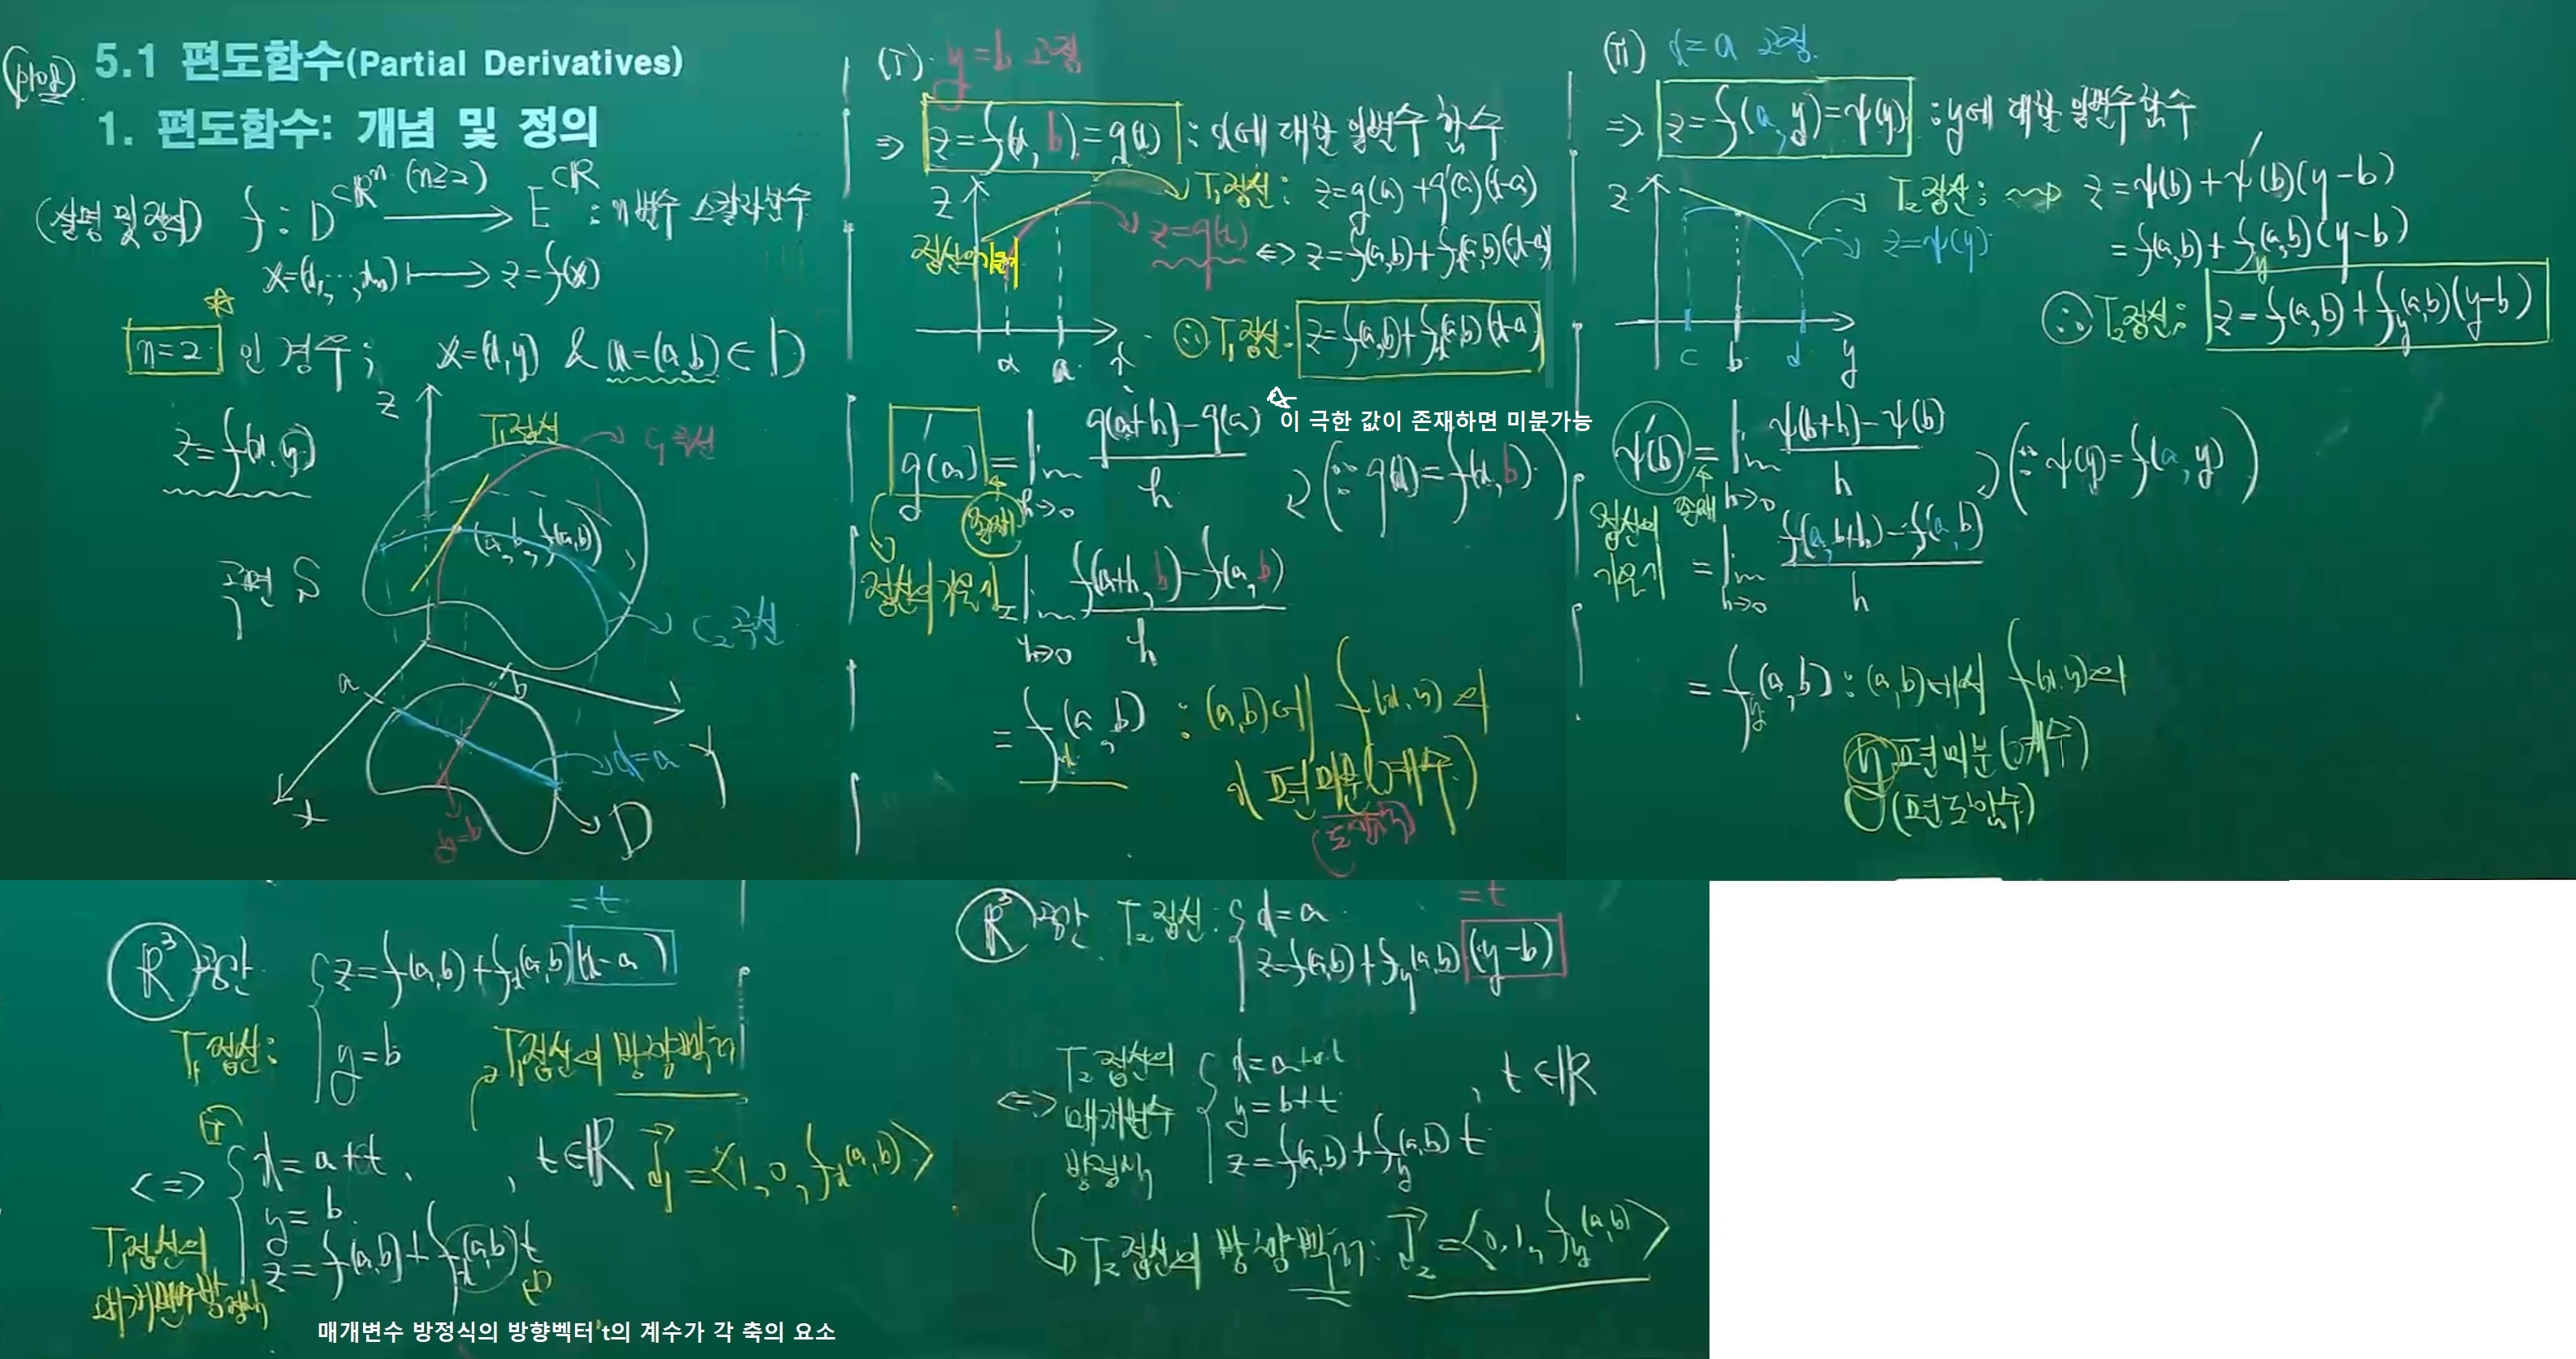 5.1 편도함수(Partial Derivatives)
1. 편도함수: 개념 및 정의
(설명 및 정의) f : D ⊂ ℝⁿ (n≥2) → E ⊂ ℝ : n변수 스칼라함수
x=(x₁, ⋯, xₙ) ↦ z=f(x)
n=2 인 경우; x=(x,y) & a=(a,b) ∈ D
z=f(x,y)
곡면 S
z
T₁접선
C₁곡선
(a, b, f(a,b))
C₂곡선
a
b
x=a
y
x
y=b
D
(i) y=b 고정
⇒ z=f(x, b)=g(x) : x에 대한 일변수 함수
z
T₁접선: z=g(a)+g'(a)(x-a)
z=g(x)
⇔ z=f(a,b)+fₓ(a,b)(x-a)
∴ T₁접선: z=f(a,b)+fₓ(a,b)(x-a)
α a x
이 극한 값이 존재하면 미분가능
g'(a) = lim h→0 g(a+h)-g(a) / h (∵ g(x)=f(x,b))
존재
접선의 기울기
= lim h→0 f(a+h, b)-f(a, b) / h
= fₓ(a,b) : (a,b)에서 f(x,y)의
x 편미분(계수)
(ii) x=a 고정
⇒ z=f(a,y)=ψ(y) : y에 대한 일변수함수
z
T₂접선: z=ψ(b)+ψ'(b)(y-b)
z=ψ(y)
=f(a,b)+f_y(a,b)(y-b)
∴ T₂접선: z=f(a,b)+f_y(a,b)(y-b)
c b d y
ψ'(b) = lim h→0 ψ(b+h)-ψ(b) / h (∵ ψ(y)=f(a,y))
존재
접선의
기울기
= lim h→0 f(a,b+h)-f(a,b) / h
= f_y(a,b) : (a,b)에서 f(x,y)의
y 편미분(계수)
(편도함수)
=t
ℝ³공간 z=f(a,b)+fₓ(a,b)(x-a)
T₁접선: y=b
T₁접선의 방향벡터
⇔ x=a+t, t∈ℝ d₁=<1, 0, fₓ(a,b)>
y=b
z=f(a,b)+fₓ(a,b)t
T₁접선의
매개변수방정식
매개변수 방정식의 방향벡터 t의 계수가 각 축의 요소
=t
ℝ³공간 T₂접선: x=a
z=f(a,b)+f_y(a,b)(y-b)
T₂접선의 x=a+0t
⇔ 매개변수 y=b+t , t∈ℝ
방정식 z=f(a,b)+f_y(a,b)t
T₂접선의 방향벡터: d₂=<0, 1, f_y(a,b)>